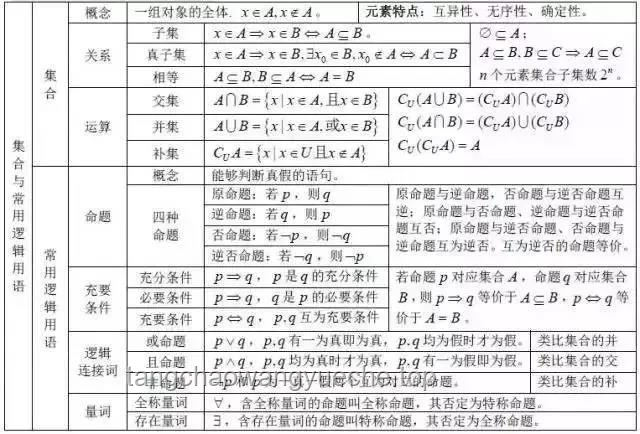 集合与常用逻辑用语
集合
概念
一组对象的全体. x∈A, x∉A。
元素特点：互异性、无序性、确定性。
关系
子集
x∈A ⇒ x∈B ⇔ A⊆B。
真子集
x∈A ⇒ x∈B, ∃x₀∈B, x₀∉A ⇔ A⊂B
相等
A⊆B, B⊆A ⇔ A=B
∅⊆A；
A⊆B, B⊆C ⇒ A⊆C
n个元素集合子集数2ⁿ。
运算
交集
A∩B={x|x∈A,且x∈B}
并集
A∪B={x|x∈A,或x∈B}
补集
C_U A={x|x∈U且x∉A}
C_U(A∪B)=(C_U A)∩(C_U B)
C_U(A∩B)=(C_U A)∪(C_U B)
C_U(C_U A)=A
常用逻辑用语
命题
概念
能够判断真假的语句。
四种
命题
原命题：若p，则q
逆命题：若q，则p
否命题：若¬p，则¬q
逆否命题：若¬q，则¬p
原命题与逆命题，否命题与逆否命题互
逆；原命题与否命题、逆命题与逆否命
题互否；原命题与逆否命题、否命题与
逆命题互为逆否。互为逆否的命题等价。
充要
条件
充分条件
p⇒q，p是q的充分条件
必要条件
p⇒q，q是p的必要条件
充要条件
p⇔q，p,q互为充要条件
若命题p对应集合A，命题q对应集合
B，则p⇒q等价于A⊆B，p⇔q等
价于A=B。
逻辑
连接词
或命题
p∨q，p,q有一为真即为真，p,q均为假时才为假。
类比集合的并
且命题
p∧q，p,q均为真时才为真，p,q有一为假即为假。
类比集合的交
非命题
命题。
类比集合的补
tangchaowangyueshe.top
量词
全称量词
∀，含全称量词的命题叫全称命题，其否定为特称命题。
存在量词
∃，含存在量词的命题叫特称命题，其否定为全称命题。